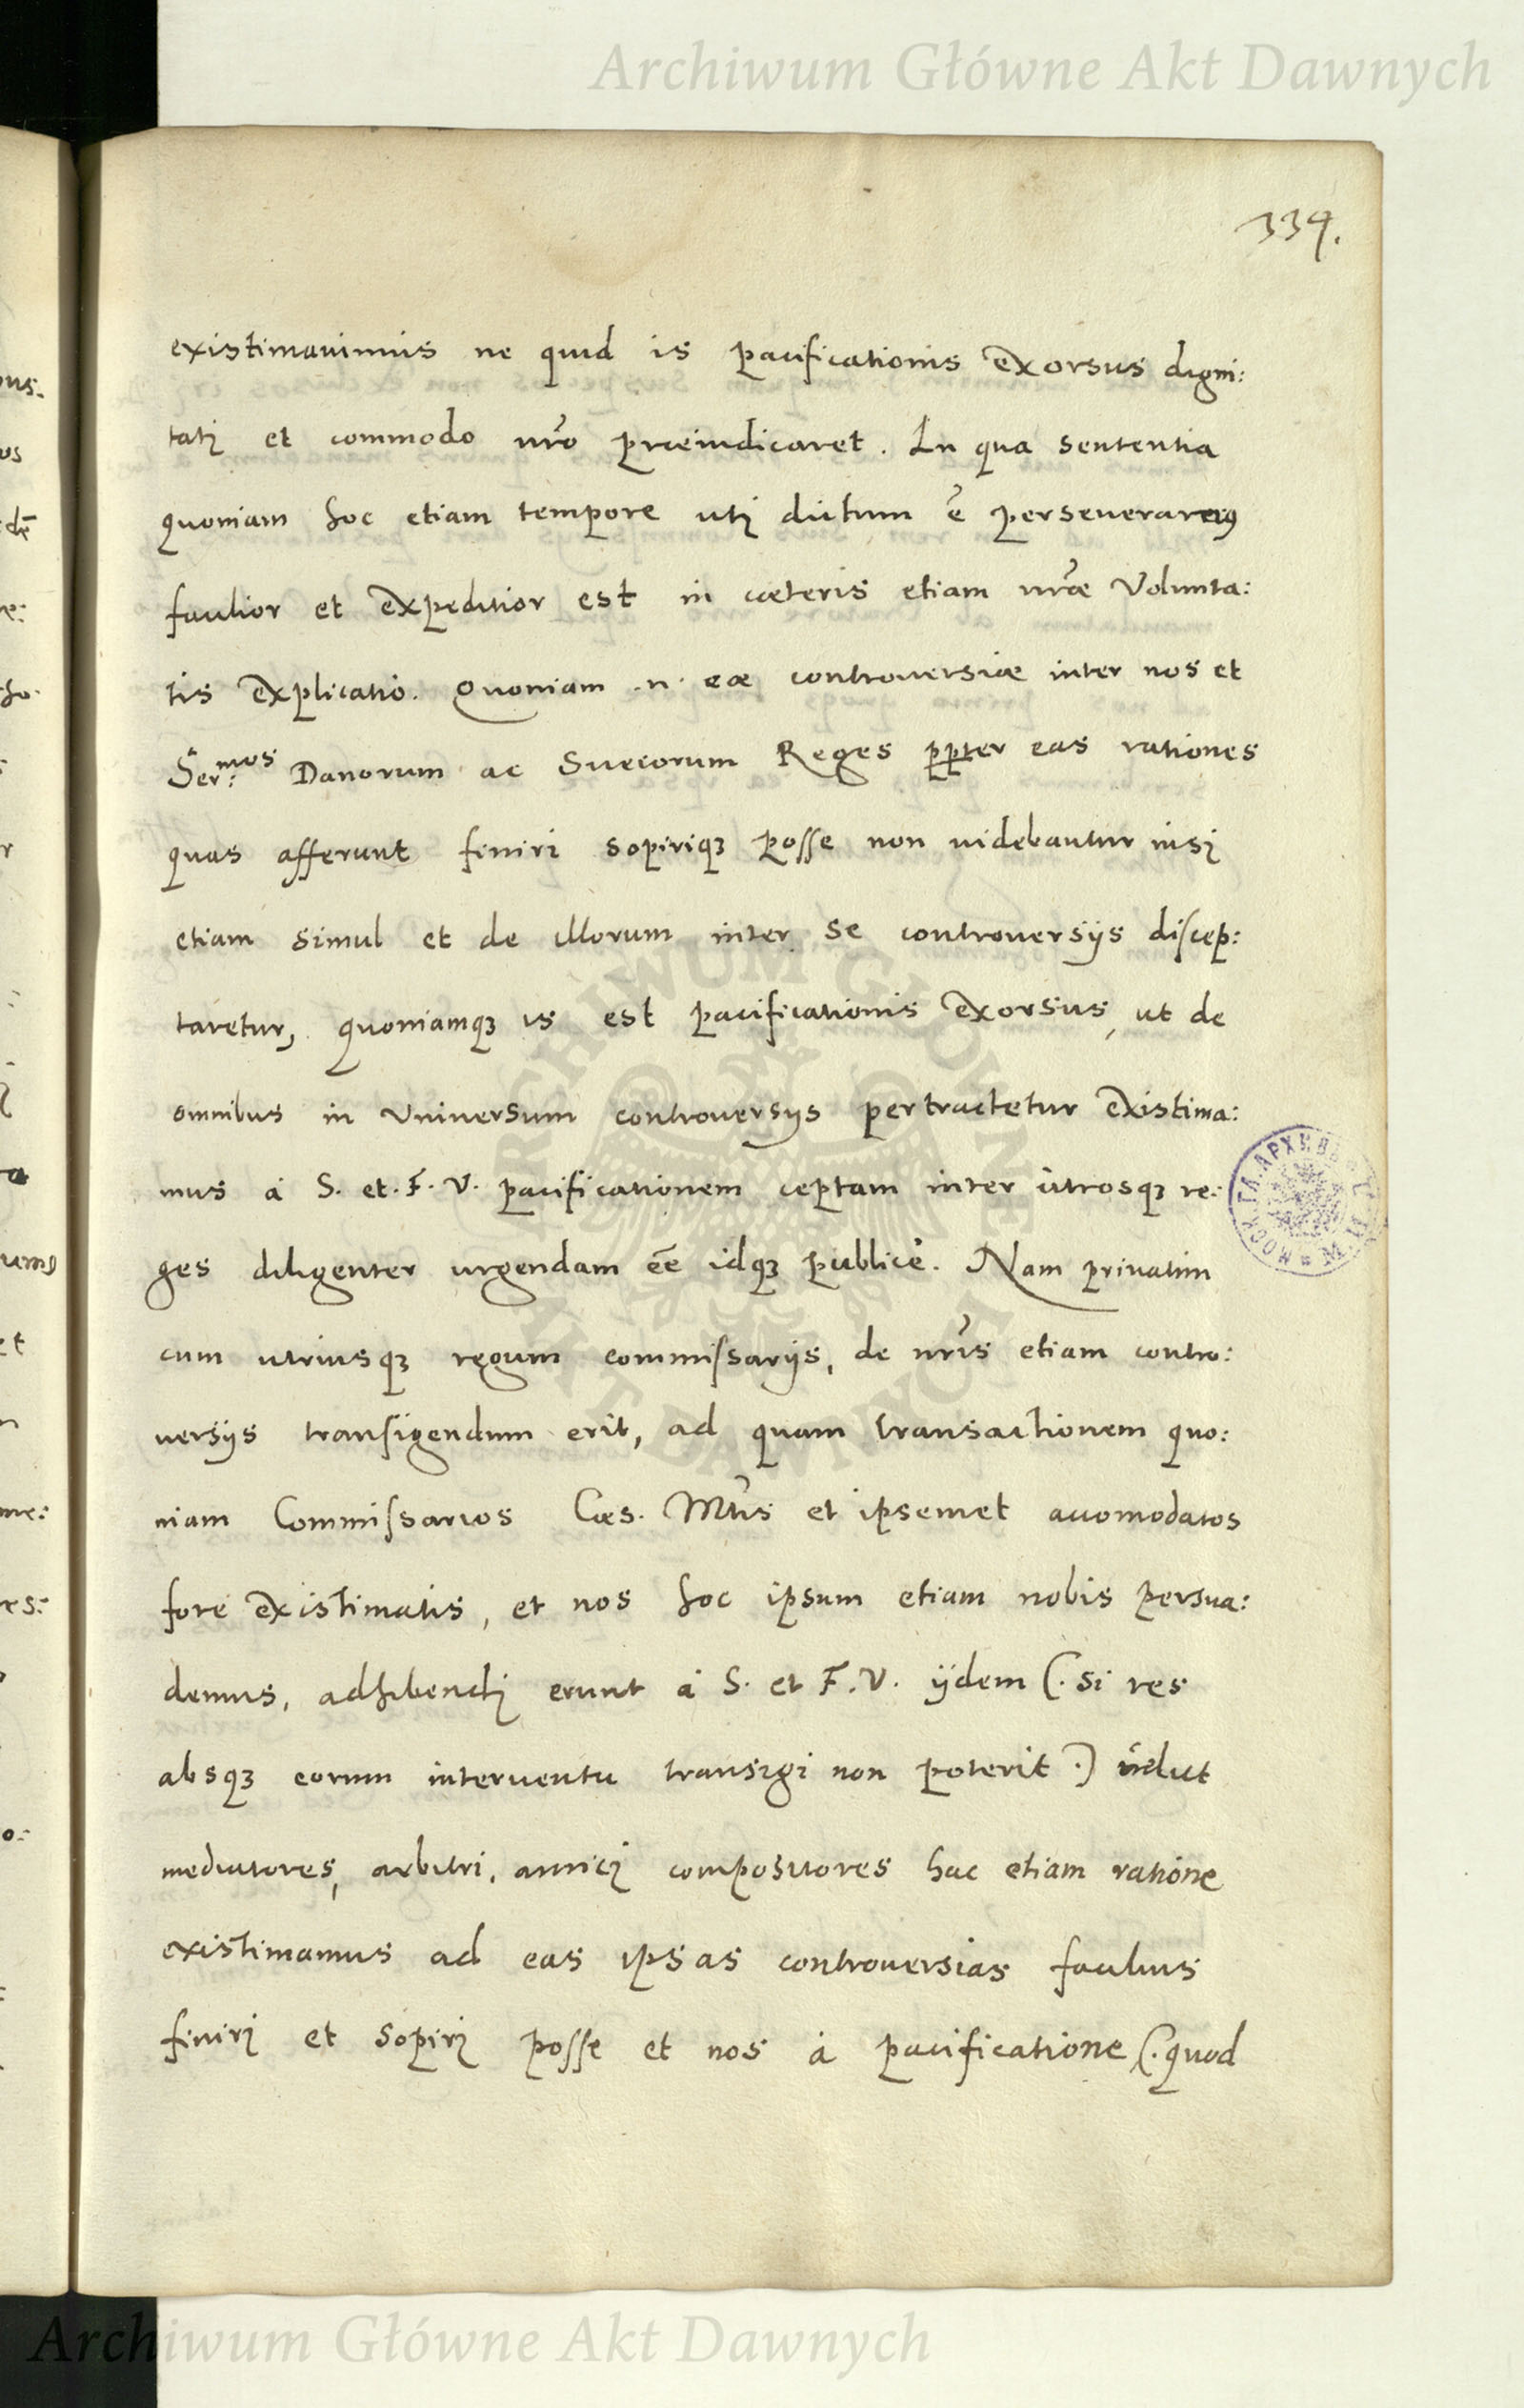 Archiwum Główne Akt Dawnych
339.
existimauimus ne quid is pacificationis exorsus digni:
tati et commodo nrõ præiudicaret. In qua sententia
quoniam hoc etiam tempore uti dictum ẽ perseueramus
facilior et expeditior est in cæteris etiam nrãe Volunta:
tis explicatio. Quoniam .n. eæ controuersiæ inter nos et
Ser:mos Danorum ac Suecorum Reges ppter eas rationes
quas afferunt finiri sopiriq3 posse non uidebantur nisi
etiam simul et de illorum inter se controuersijs discep:
taretur, quoniamq3 is est pacificationis exorsus, ut de
omnibus in Vniuersum controuersijs pertractetur existima:
mus à S. et. F. V. pacificationem ceptam inter utrosq3 re:
ges diligenter urgendam eẽ idq3 publicè. Nam priuatim
cum utriusq3 regum commissarijs, de nrĩs etiam contro:
uersijs transigendum erit, ad quam transactionem quo:
niam Commissarios Cæs. Mtis et ipsemet accomodatos
fore existimatis, et nos hoc ipsum etiam nobis persua:
demus, adhibendi erunt à S. et F. V. ijdem (. si res
absq3 eorum interuentu transigi non poterit .) uelut
mediatores, arbitri, amici compositores hac etiam ratione
existimamus ad eas ipsas controuersias facilius
finiri et sopiri posse et nos à pacificatione (. quod
ARCHIWUM GŁÓWNE
AKT DAWNYCH
Archiwum Główne Akt Dawnych